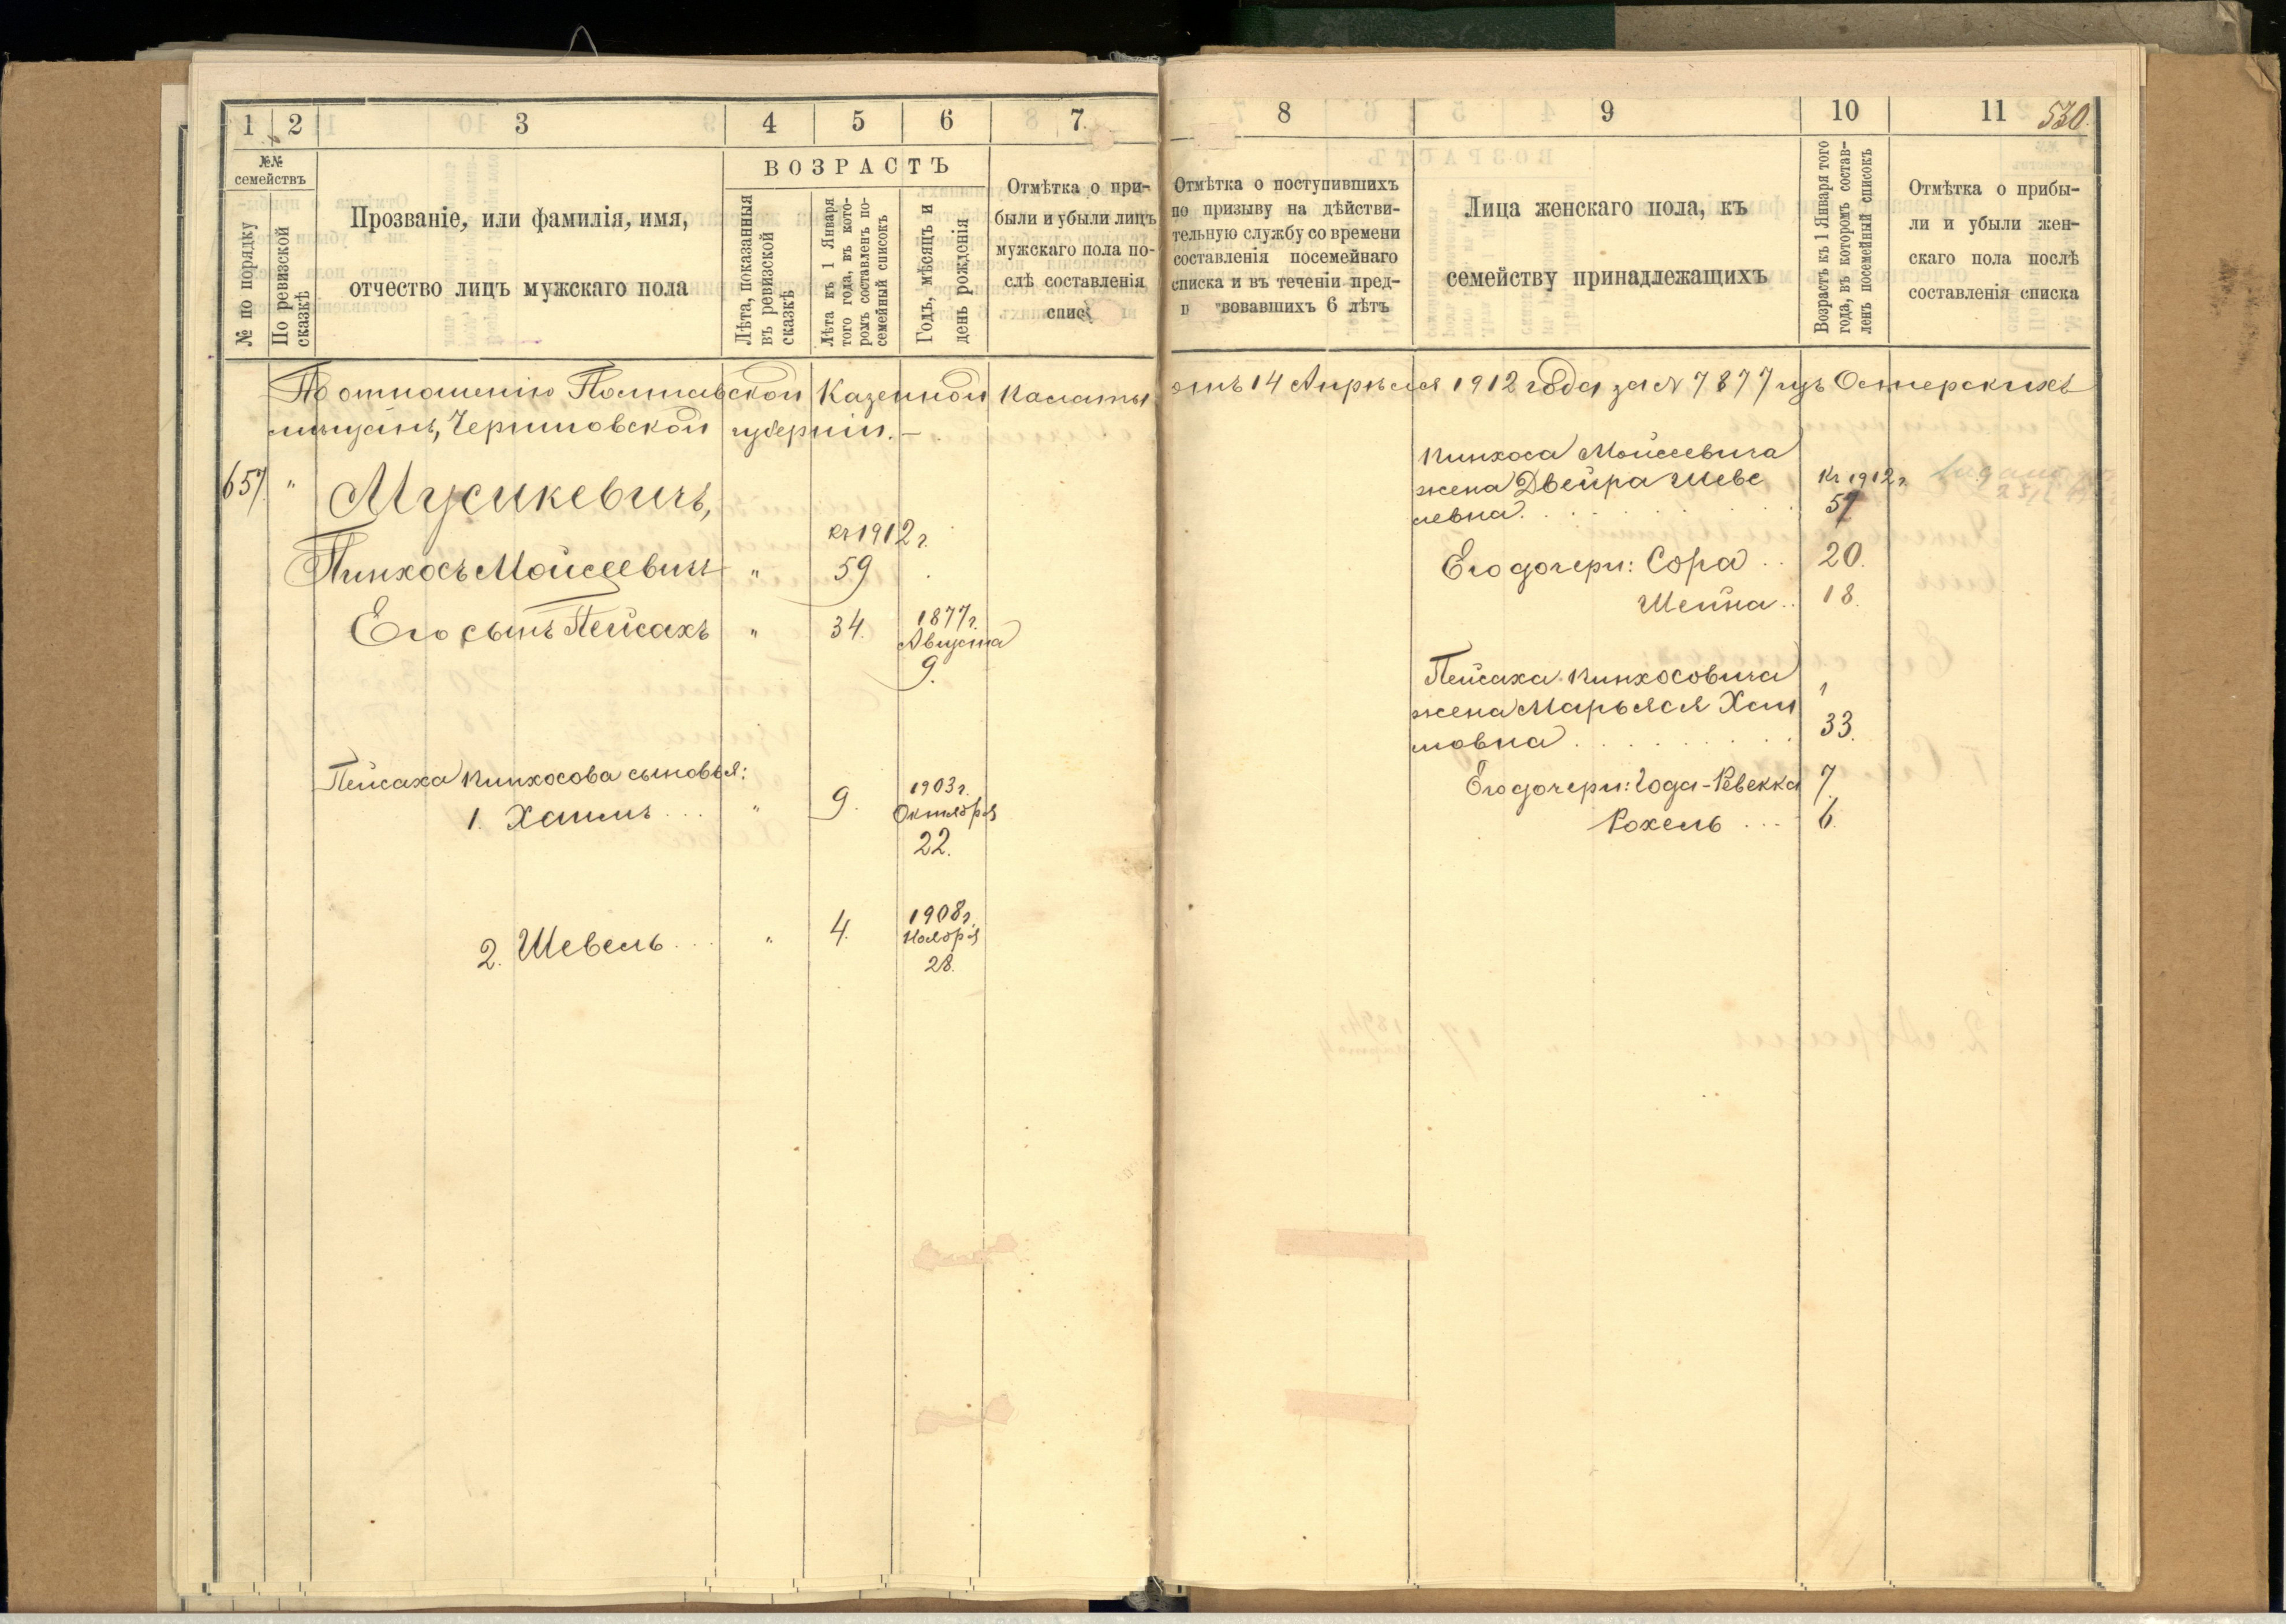 1 2 3 4 5 6 7.
№№ семействъ
№ по порядку
По ревизской сказкѣ
Прозваніе, или фамилія, имя,
отчество лицъ мужскаго пола
ВОЗРАСТЪ
Лѣта, показанныя
въ ревизской
сказкѣ
Лѣта къ 1 Января
того года, въ кото-
ромъ составленъ по-
семейный списокъ
Годъ, мѣсяцъ и
день рожденія
Отмѣтка о при-
были и убыли лицъ
мужскаго пола по-
слѣ составленія
спис
8 9 10 11 530.
Отмѣтка о поступившихъ
по призыву на дѣйстви-
тельную службу со времени
составленія посемейнаго
списка и въ теченіи пред-
вовавшихъ 6 лѣтъ
Лица женскаго пола, къ
семейству принадлежащихъ
Возрастъ къ 1 Января того
года, въ которомъ состав-
ленъ посемейный списокъ
Отмѣтка о прибы-
ли и убыли жен-
скаго пола послѣ
составленія списка
По отношенію Полтавской Казенной Палаты отъ 14 Апрѣля 1912 года за N 7877 изъ Остерскихъ
мѣщанъ, Черниговской губерніи.—
657. " Мусикевичъ,
къ 1912 г.
Пинхосъ Мойсеевичъ " 59
Его сынъ Пейсахъ " 34. 1877 г.
Августа
9.
Пейсаха Пинхосова сыновья:
1. Хаимъ . . . " 9. 1903 г.
Октября
22.
2. Шевель . . . " 4. 1908 г.
Ноября
28.
Пинхоса Мойсеевича
жена Двейра Шеве
левна. къ 1912 г.
57
Его дочери: Сора . . 20.
Шейна . . 18.
Пейсаха Пинхосовича
жена Марьяся Хаи
мовна 33.
Его дочери: Года-Ревекка 7
Рохель . . . 6.